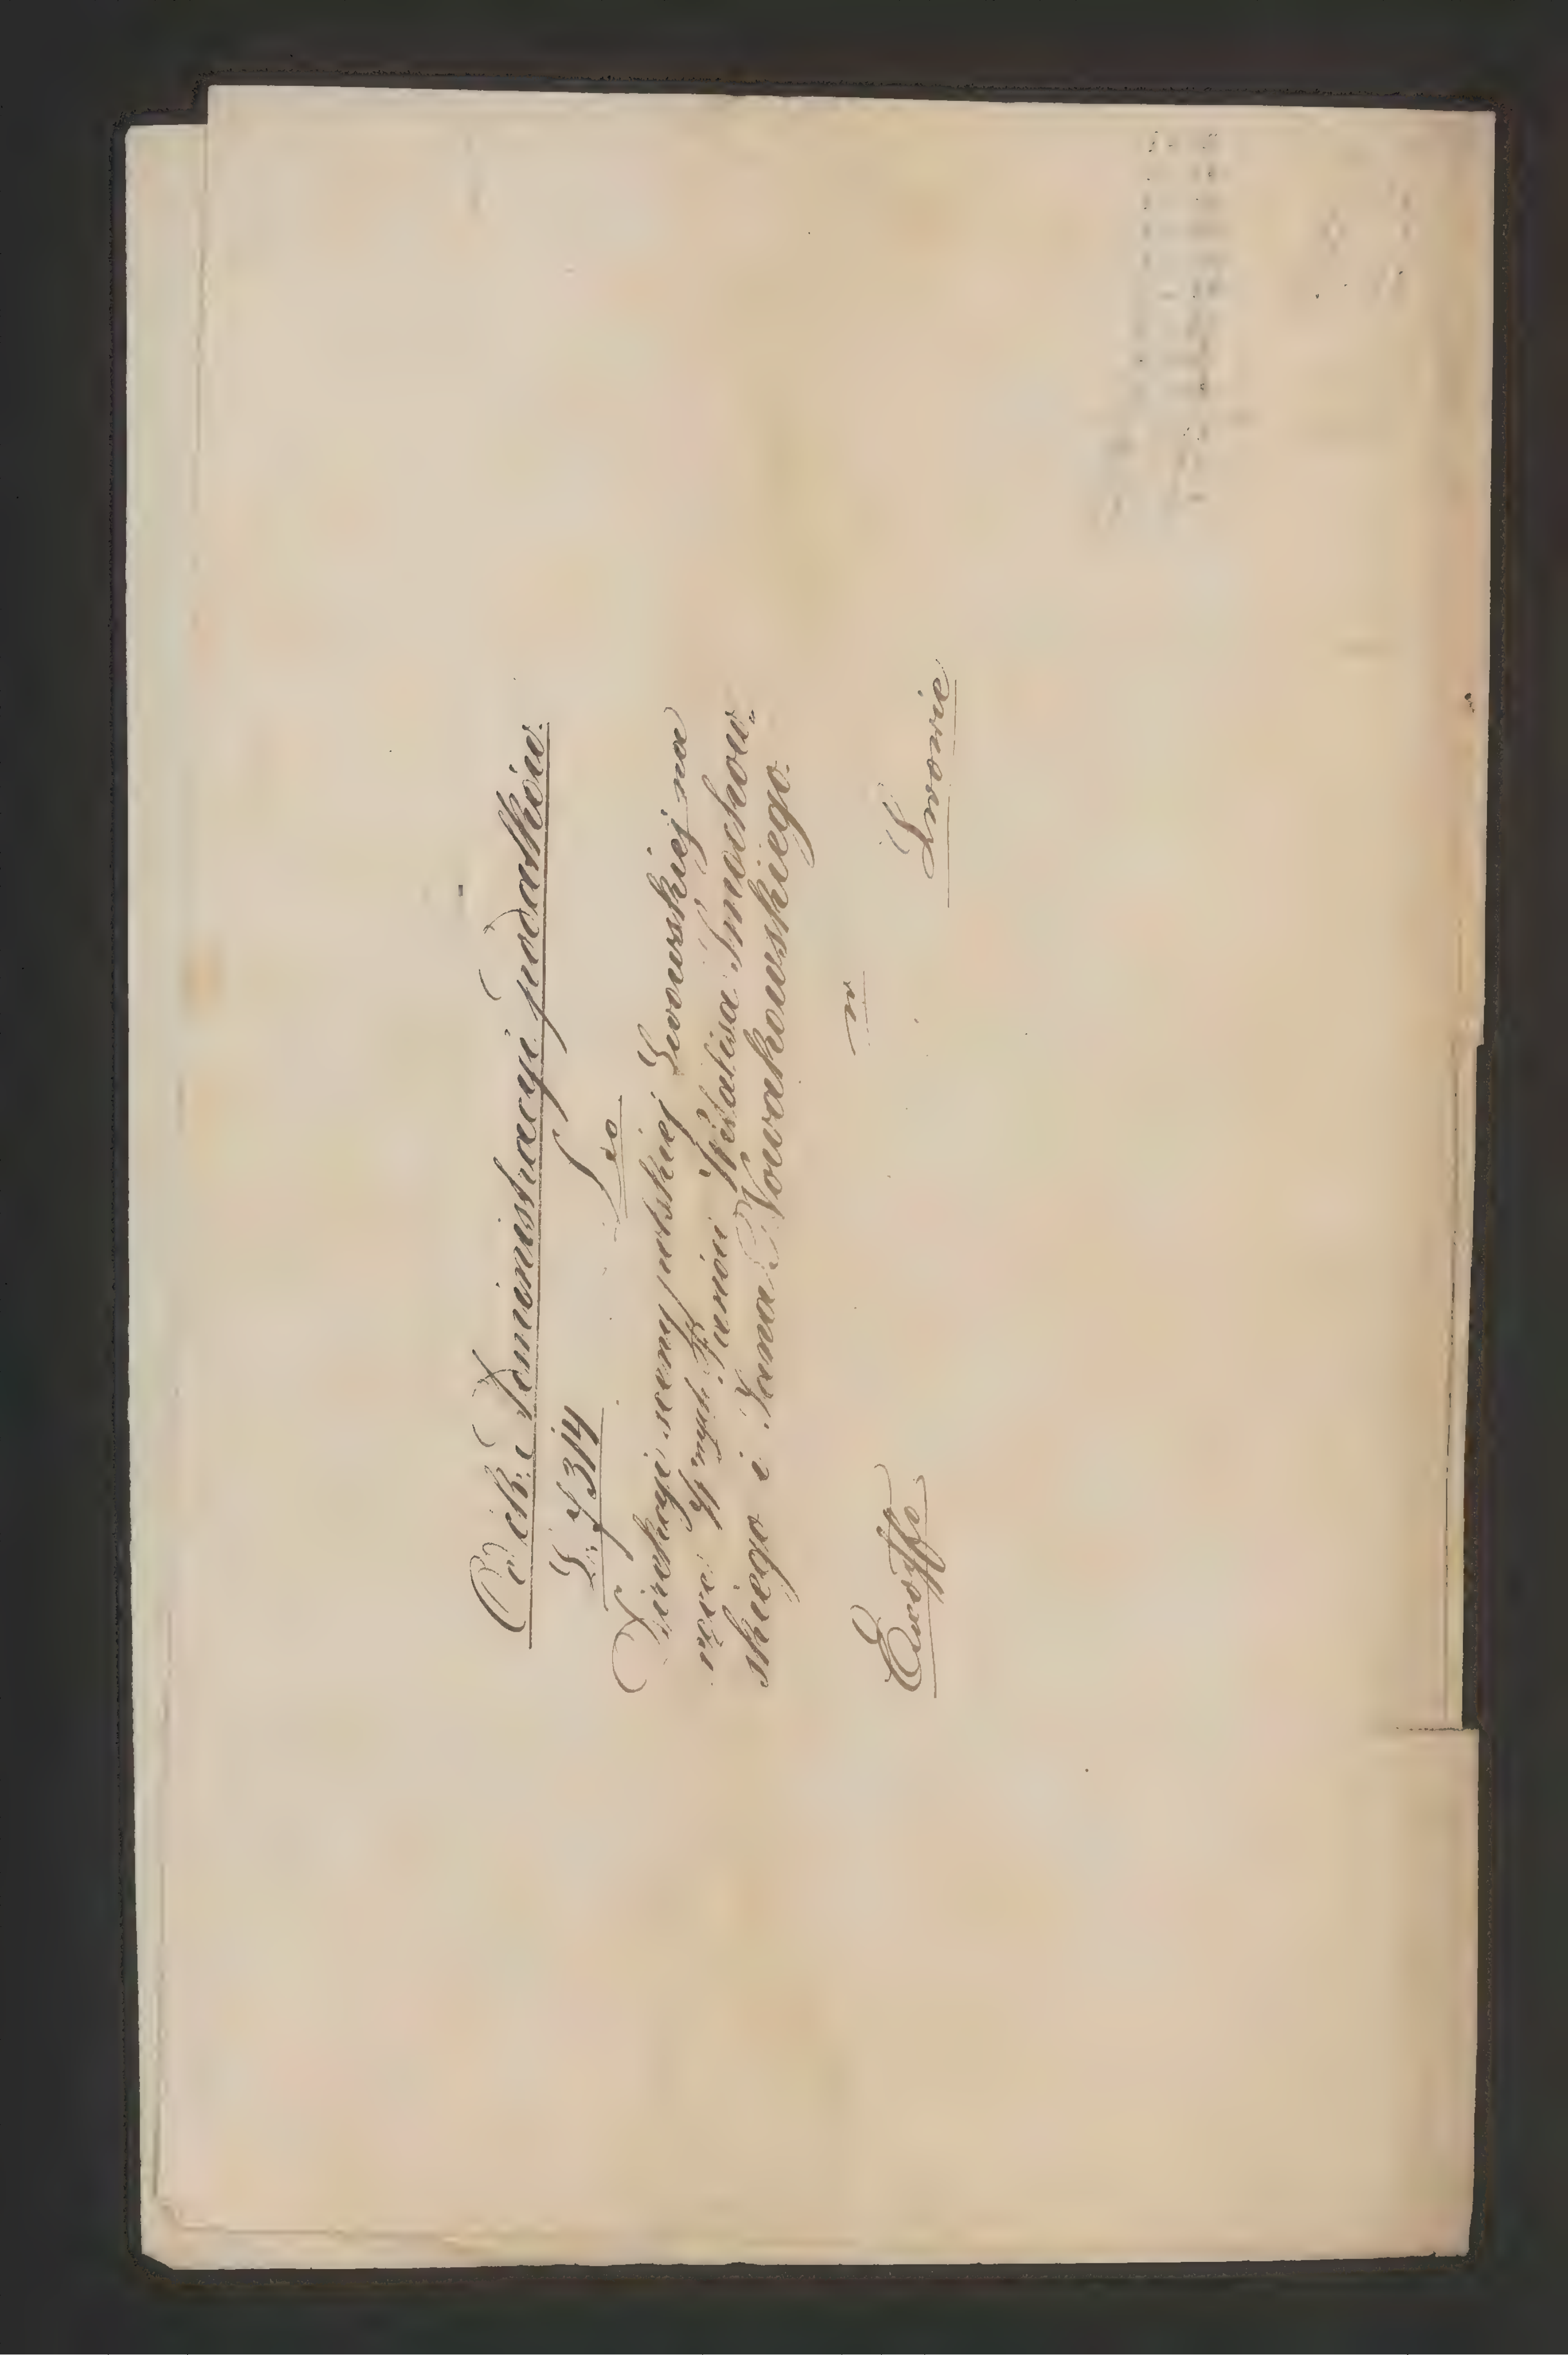 Od c.k. Administracyi podatków.
L. 7314
Do
Direkcyi sceny polskiej Lwowskiej na
ręce Wnych Panów Witalisa Smochow„
skiego i Jana Nowakowskiego.
w
Exoffo Lwowie